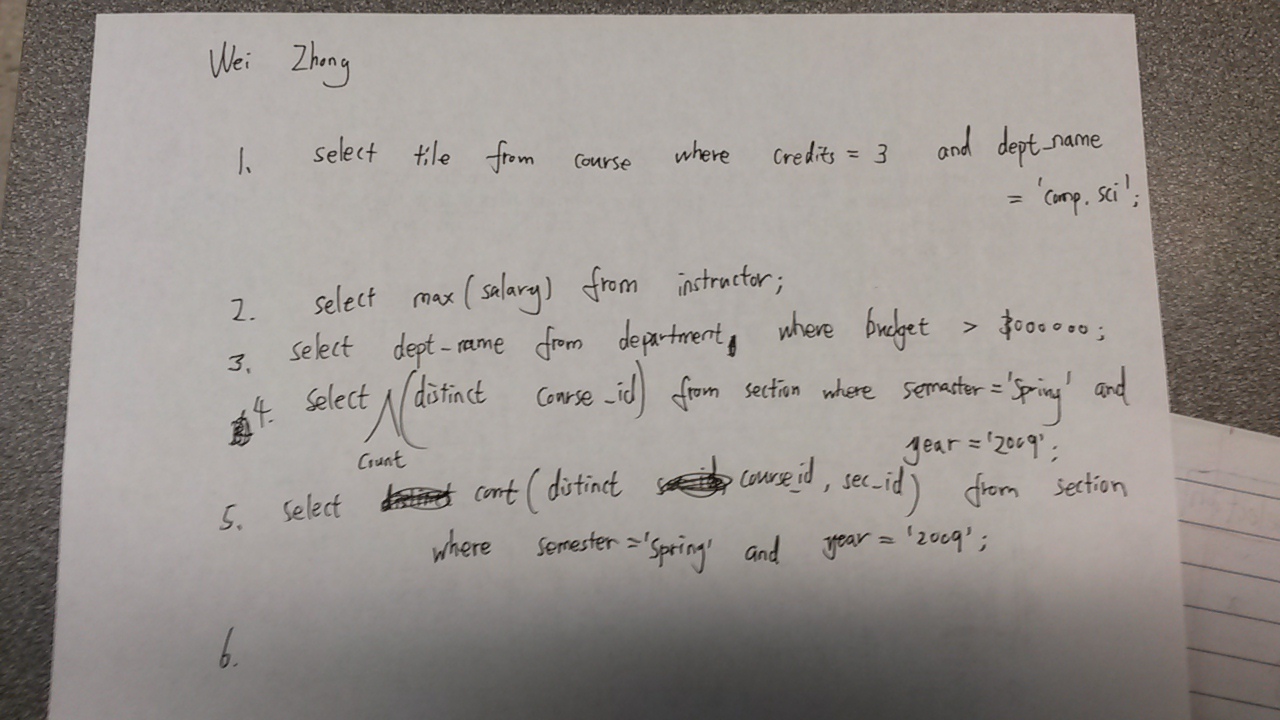 Wei Zhong
1. select tile from course where credits = 3 and dept_name
= 'comp. sci';
2. select max (salary) from instructor;
3. select dept-name from department, where budget > $000000;
4. select count (distinct course_id) from section where semaster = 'Spring' and
year = '2009';
5. select cont (distinct course_id, sec_id) from section
where semester = 'Spring' and year = '2009';
6.